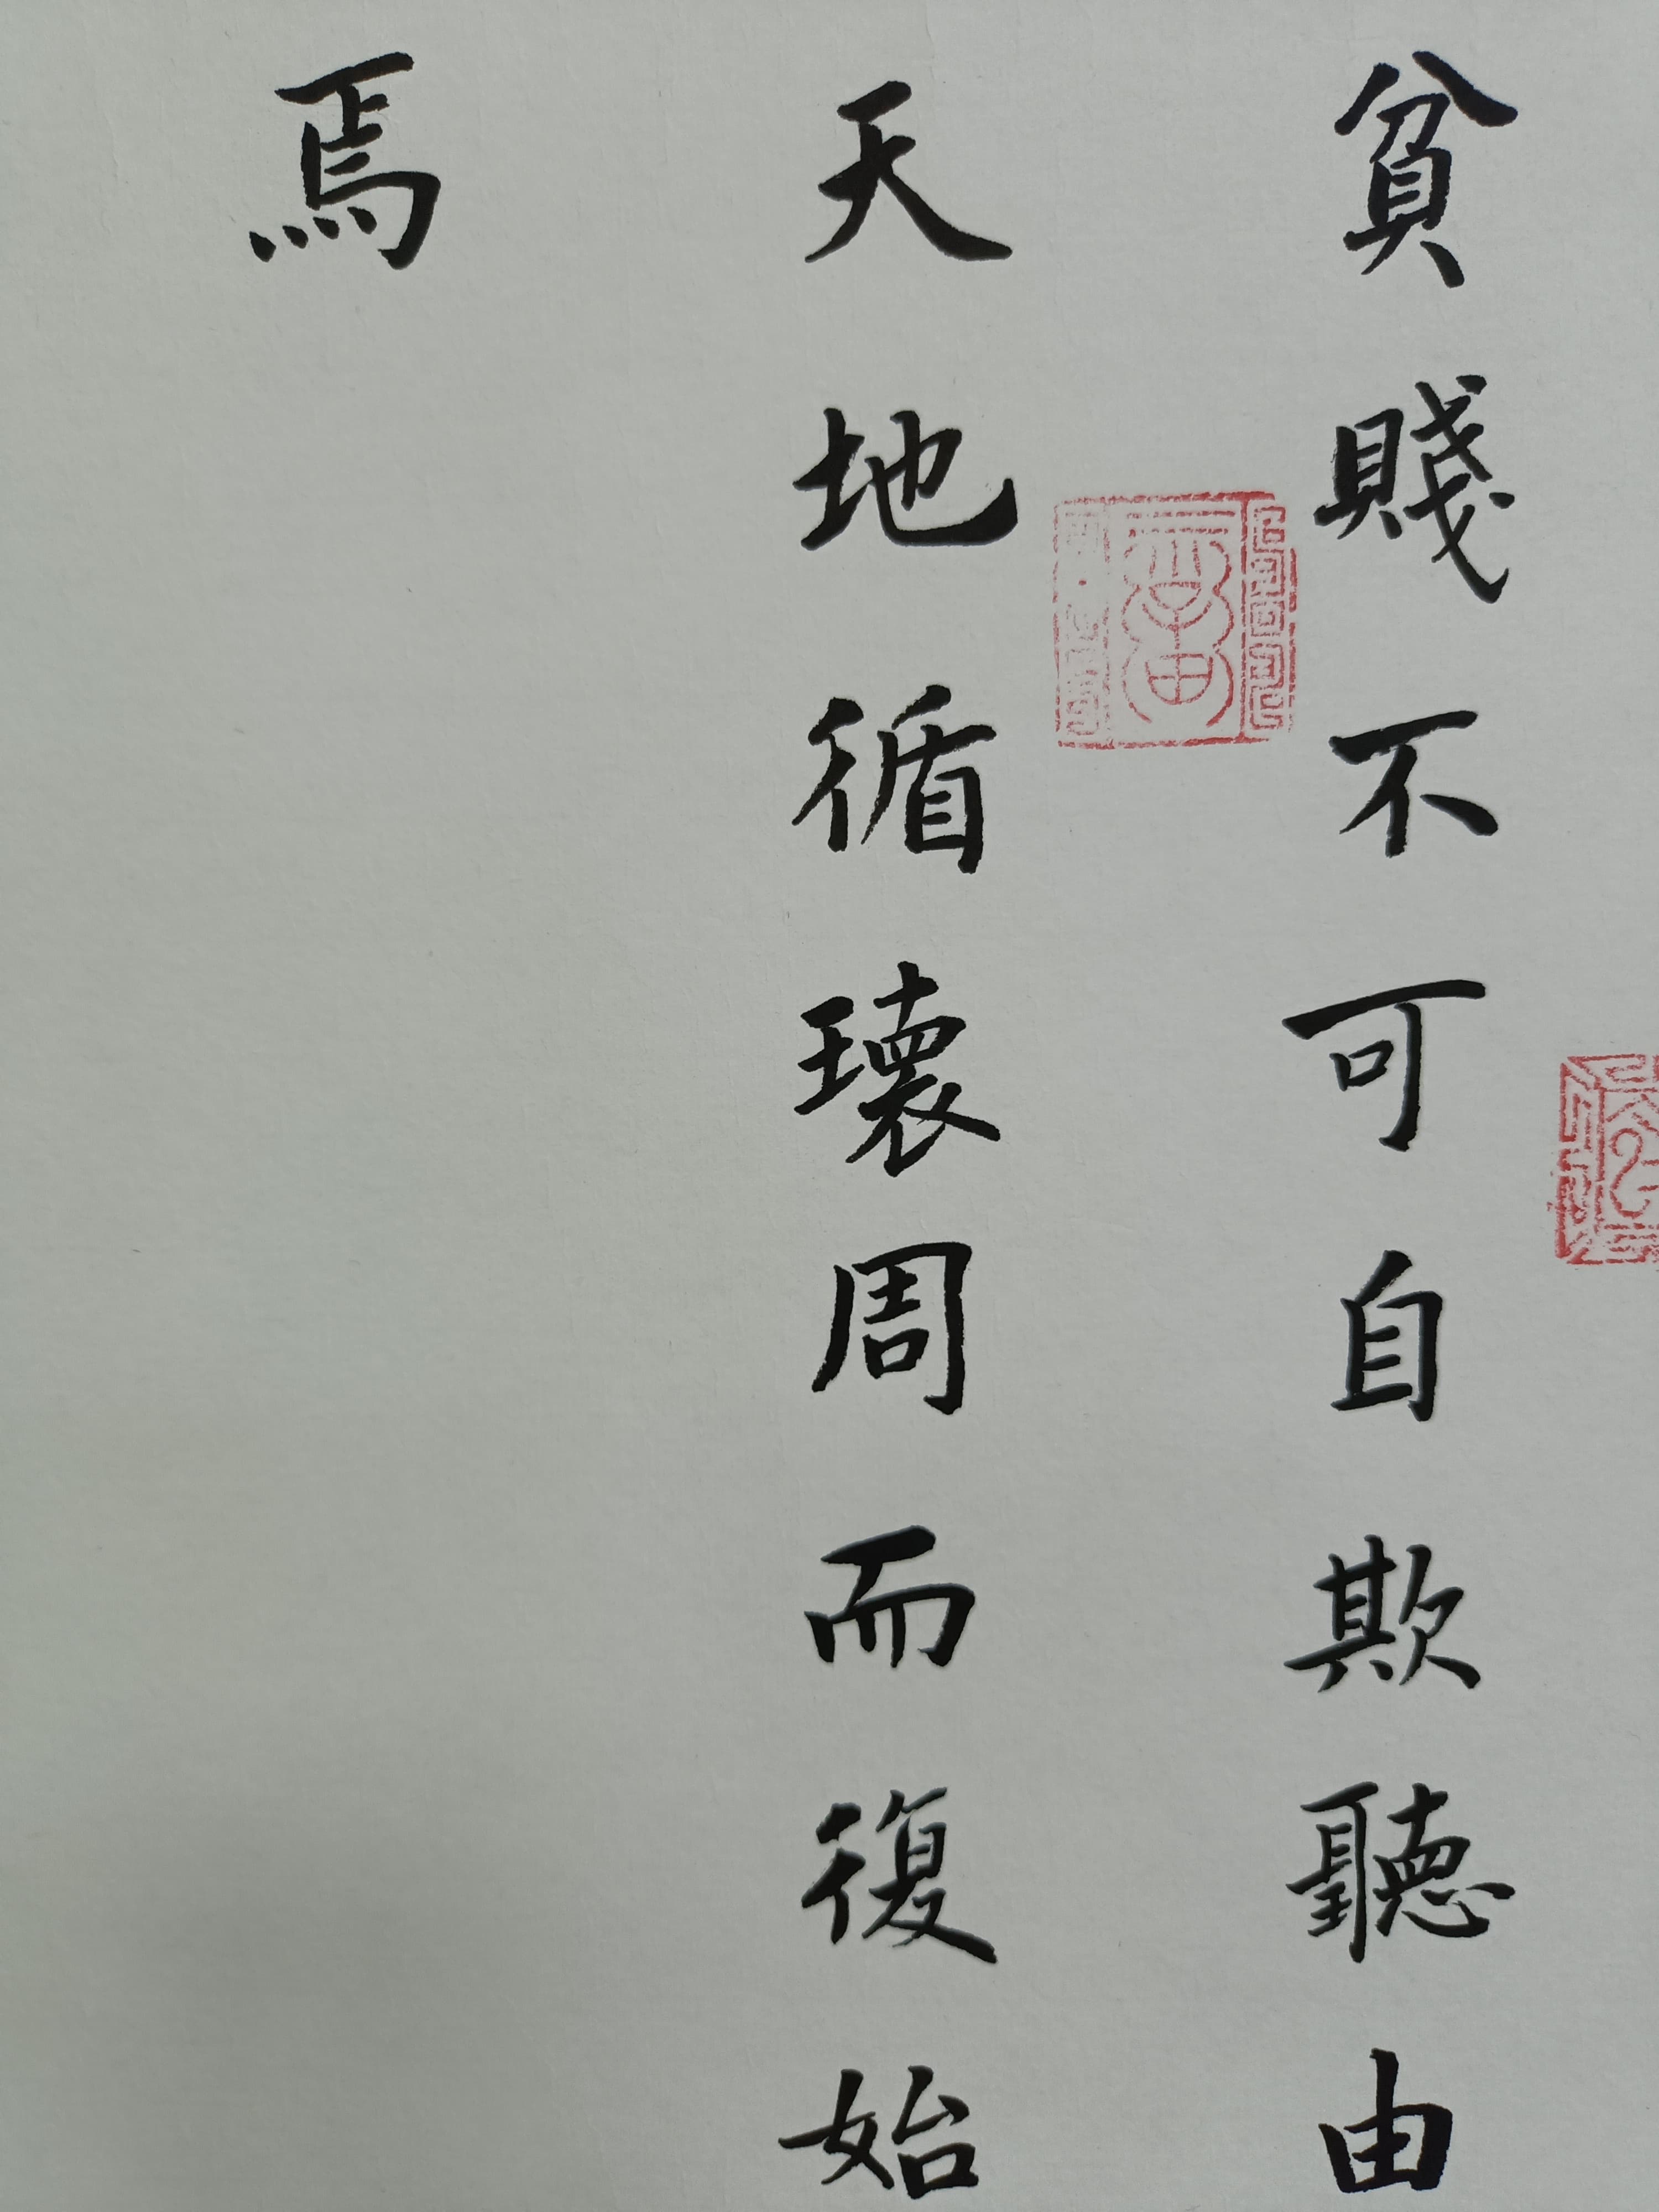 貧賤不可自欺聽由
天地循環周而復始
焉